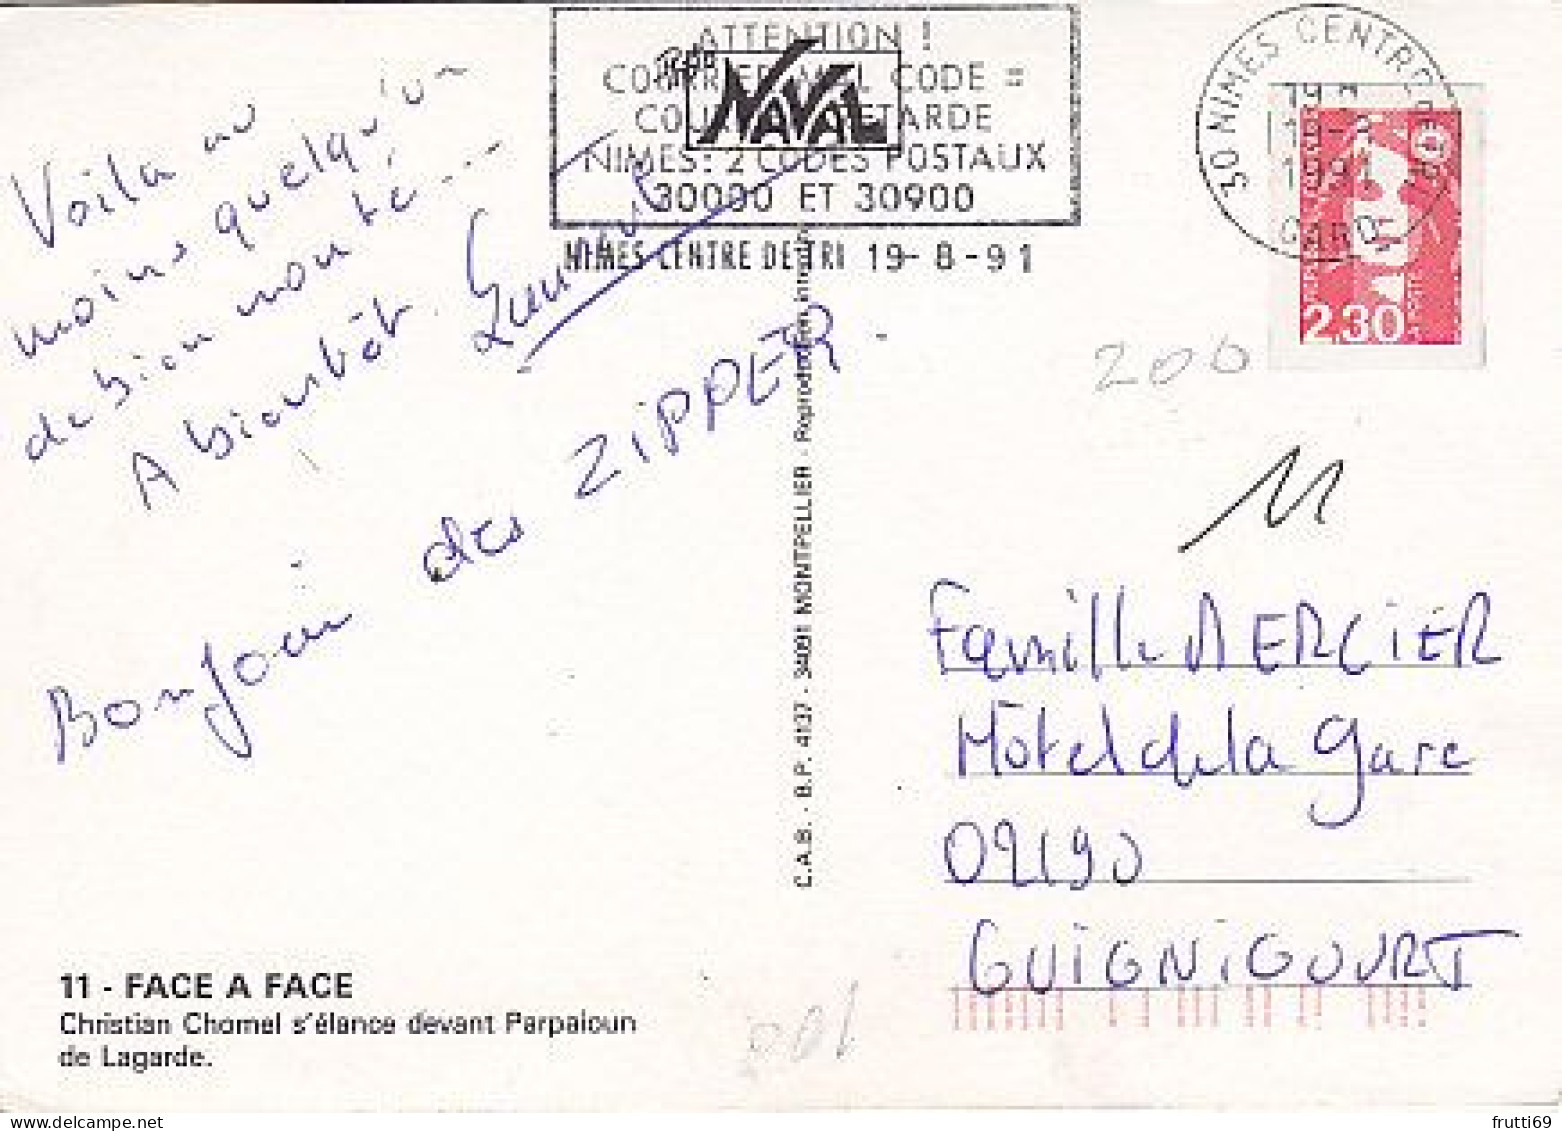 ATTENTION !
CODE =
NIMES: 2 CODES POSTAUX
30000 ET 30900
NAVAL
NIMES CENTRE DE TRI 19-8-91
30 NIMES CENTRE
1991
GARD
2,30
200
11
Voila au
moins quelqu'un
de bien monté...
A bientôt.
Bonjour des ZIPPER.
C.A.B. - B.P. 4107 - 34091 MONTPELLIER - Reproduction interdite
Famille MERCIER
Hôtel de la gare
02190
GUIGNICOURT
11 - FACE A FACE
Christian Chomel s'élance devant Parpaloun
de Lagarde.
frutti69